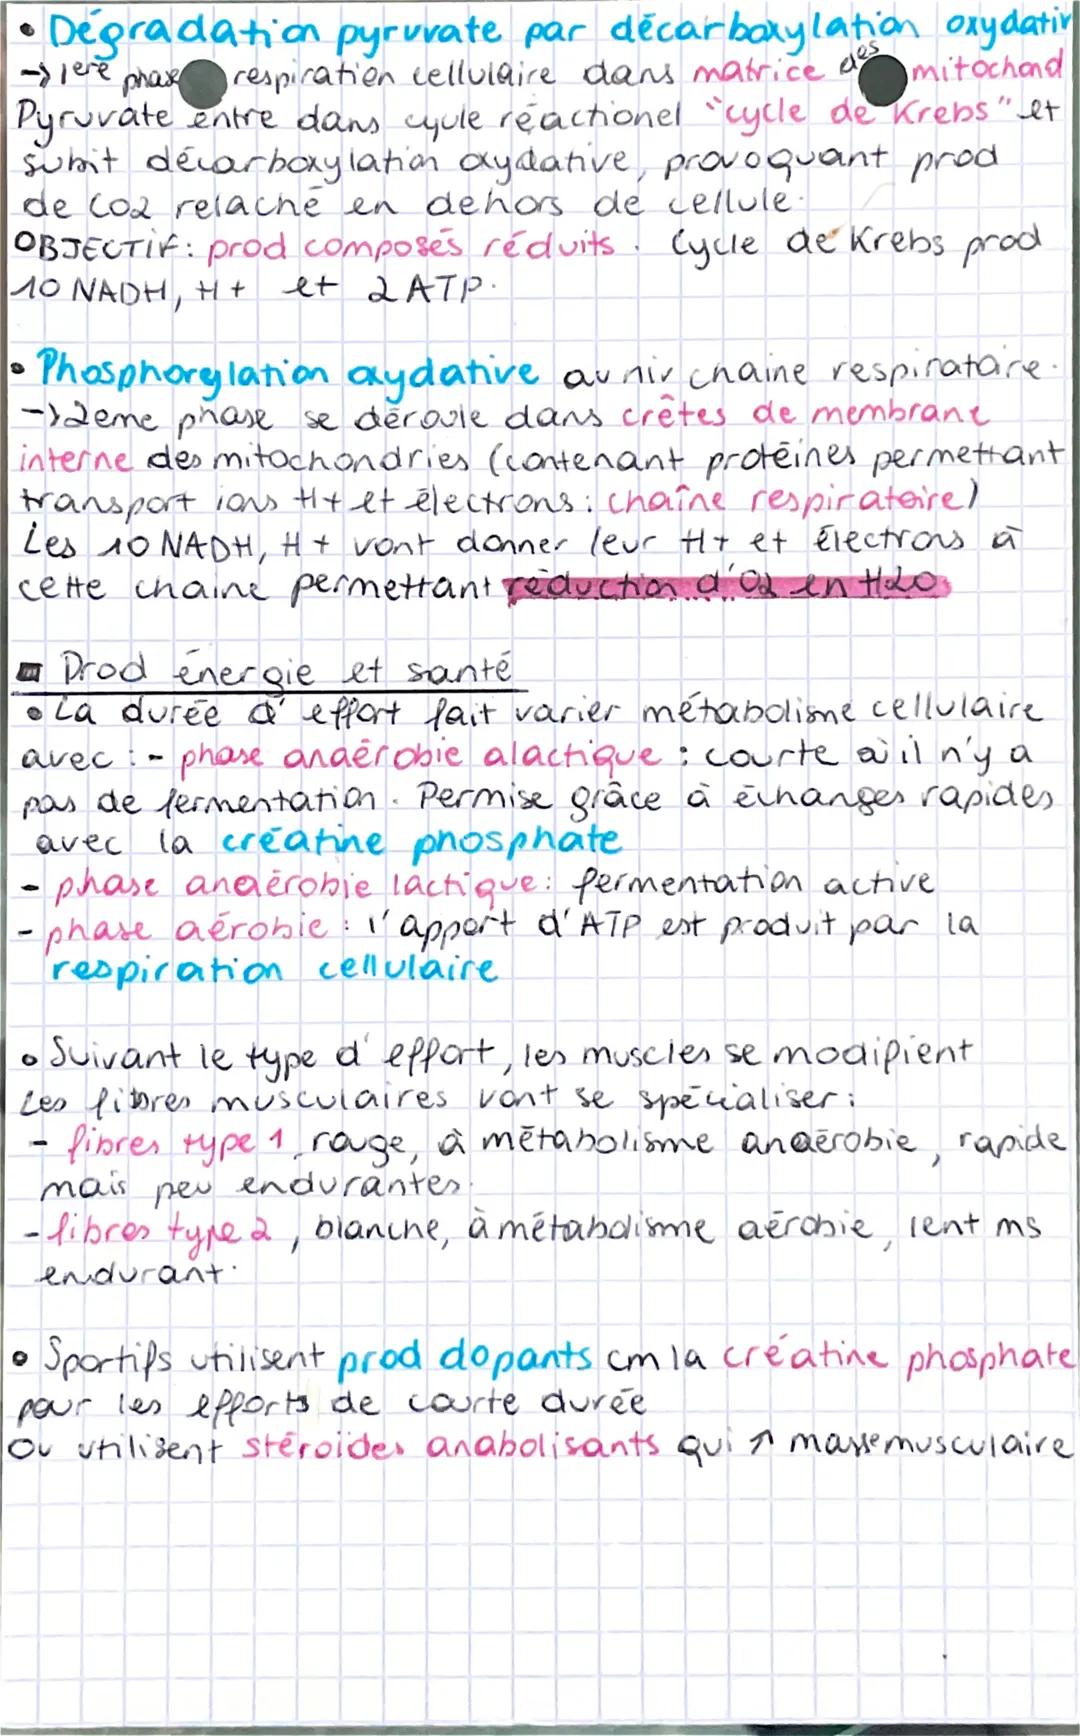 • Dégradation pyruvate par décarboxylation oxydativ
→ 1ere phase respiration cellulaire dans matrice des mitochond
Pyruvate entre dans cycle réactionel "cycle de Krebs" et
subit décarboxylation oxydative, provoquant prod
de CO2 relaché en dehors de cellule.
OBJECTIF: prod composés réduits. Cycle de Krebs prod
10 NADH, H+ et 2 ATP.
• Phosphorylation oxydative au niv chaine respiratoire.
→ 2eme phase se déroule dans crêtes de membrane
interne des mitochondries (contenant protéines permettant
transport ions H+ et électrons: chaîne respiratoire)
Les 10 NADH, H+ vont donner leur H+ et électrons à
cette chaine permettant réduction d'O2 en H2O
Prod énergie et santé
• La durée d'effort fait varier métabolisme cellulaire
avec : - phase anaérobie alactique : courte où il n'y a
pas de fermentation. Permise grâce à échanges rapides
avec la créatine phosphate
- phase anaérobie lactique: fermentation active
- phase aérobie : l'apport d'ATP est produit par la
respiration cellulaire
• Suivant le type d'effort, les muscles se modifient
Les fibres musculaires vont se spécialiser:
- fibres type 1, rouge, à métabolisme anaérobie, rapide
mais peu endurantes.
- fibres type 2, blanche, à métabolisme aérobie, lent ms
endurant.
• Sportifs utilisent prod dopants cm la créatine phosphate
pour les efforts de courte durée
Ou utilisent stéroides anabolisants qui ↗ masse musculaire